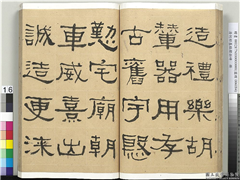 造禮樂胡
輦器用存
古舊宇慇
懃宅廟朝
車威熹出
誠造更漆
16